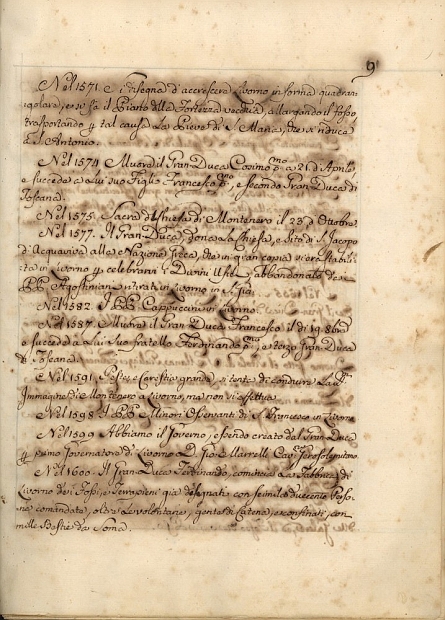 9
Nel 1571 e i disegna d'accrescere Livorno in forma quadran
golare, e si fà il Piatto della Fortezza vecchia, allargando il fosso
trasportando p tal causa la Pieve di S. Maria, che si riduce
a S. Antonio.
Nel 1574 Muore il Gran Duca Cosimo pmo a 21 d'Aprile
e succede a Lui suo Figlio Francesco pmo, e secondo Gran Duca di
Toscana.
Nel 1575. Sacra di Chiesa di Montenero il 23 d'Ottobre
Nel 1577. Il Gran Duca dona La Chiesa, e Sito di S. Jacopo
d'Acquaviva alla Nazione Greca, che in gran copia si era stabili
ta in Livorno p celebrarvi i Divini Ufizi, abbandonata dai
PP. Agostiniani entrati in Livorno in S. Gia
Nel 1582. I PP. Cappuccini in Livorno
Nel 1587. Muore il Gran Duca Francesco il di 19 8bre
e succede a Lui Suo fratello Ferdinando pmo, e terzo Gran Duca
di Toscana.
Nel 1591. Peste, e Carestia grande, si tenta di condurre La Sa
Immagine di Montenero a Livorno, ma non si effettua
Nel 1598 I PP. Minori Osservanti di S. Francesco in Livorno
Nel 1599 Abbiamo il Governo, essendo creato dal Gran Duca
p primo Governatore di Livorno D. Gio Marrelli Cavre Gerosolimitano
Nel 1600. Il Gran Duca Ferdinando, comincia La Fabbrica di
Livorno dei Fossi, e Terrapieni già disegnati con seimila duecento Perso
ne comandate, oltre Le volontarie, gente di Catena, e confinati, con
mille Bestie da Soma.